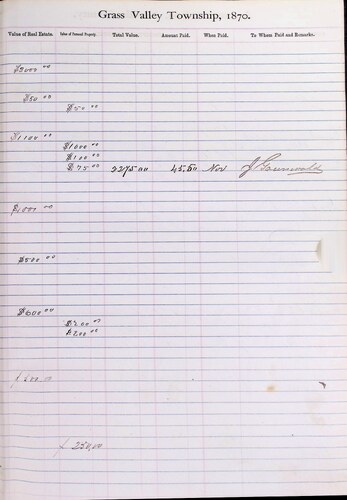 Grass Valley Township, 1870.
Value of Real Estate. Value of Personal Property. Total Value. Amount Paid. When Paid. To Whom Paid and Remarks.
$3000 00
$50 00
$50 00
$1,100 00
$1000 00
$100 00
$75 00 2275 00 45.50 Nov J Grunwald
$500 00
$600 00
$200 00
$200 00
250,00